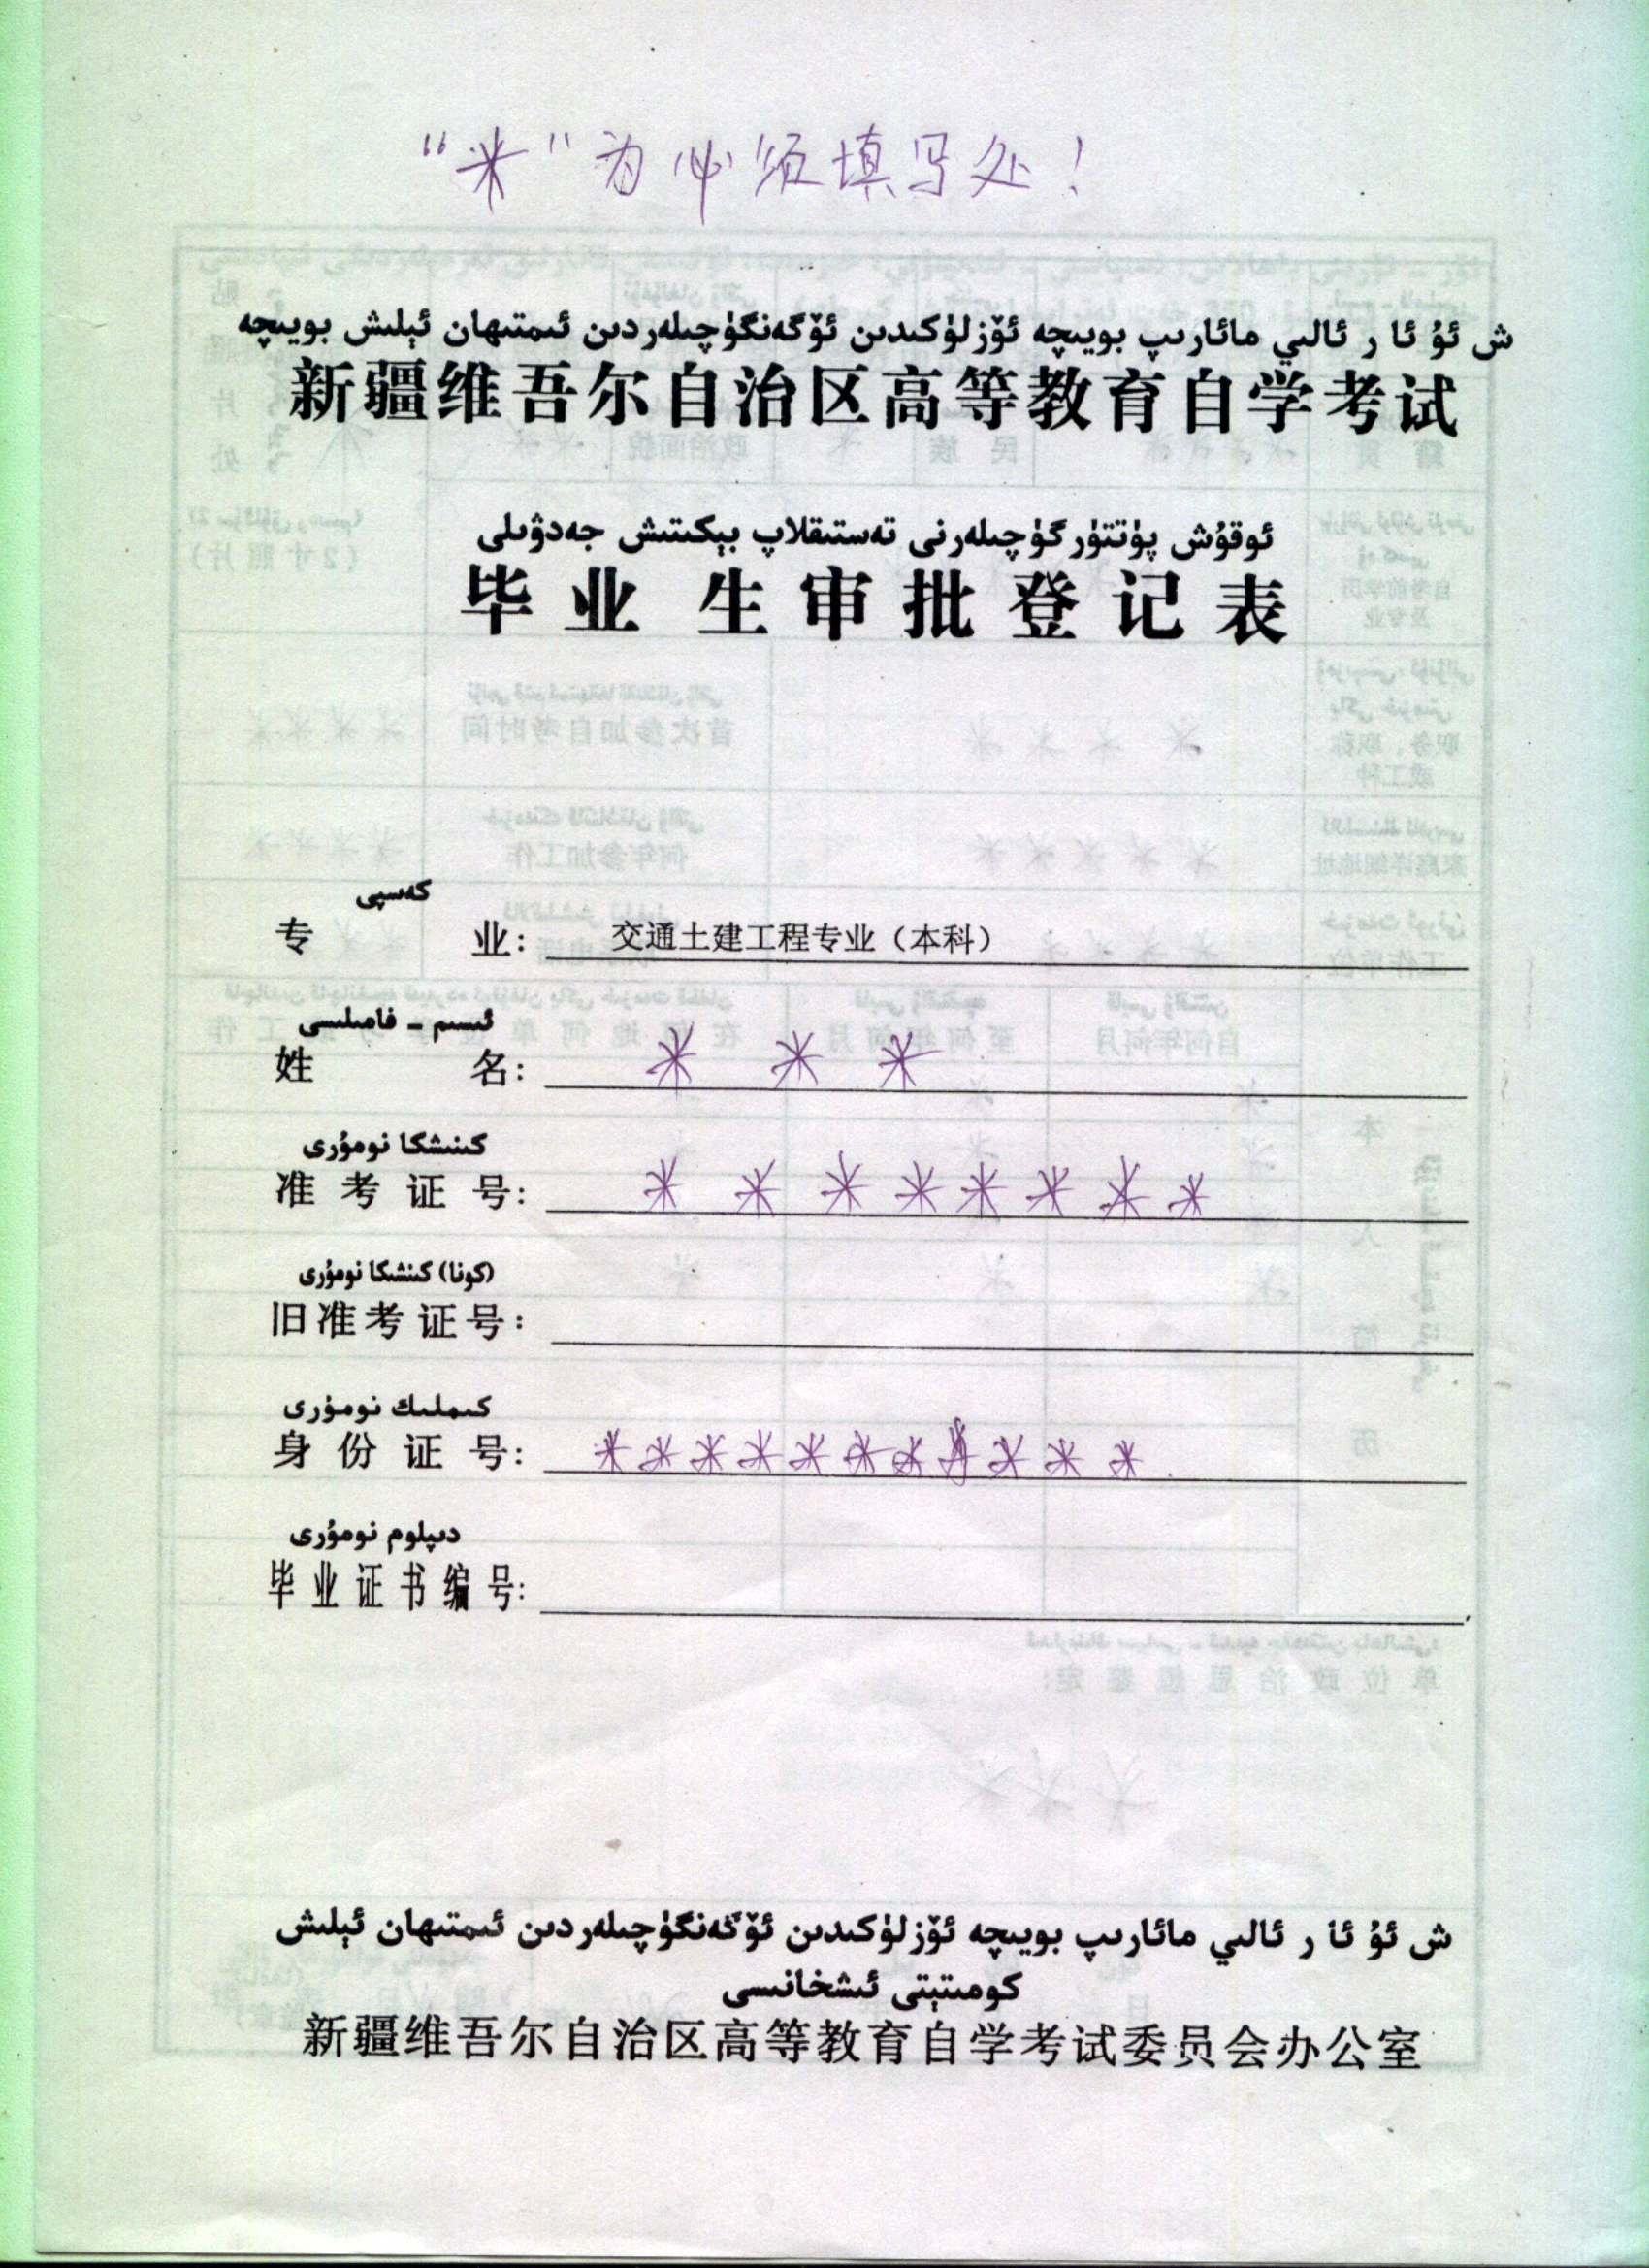 “米”为必须填写处！
ش ئۇ ئا ر ئالىي مائارىپ بويىچە ئۆزلۈكىدىن ئۆگەنگۈچىلەردىن ئىمتىھان ئېلىش بويىچە
新疆维吾尔自治区高等教育自学考试
ئوقۇش پۈتتۈرگۈچىلەرنى تەستىقلاپ بېكىتىش جەدۋىلى
毕业生审批登记表
كەسپى
专业：交通土建工程专业（本科）
ئىسىم - فامىلىسى
姓名：* * *
كىنىشكا نومۇرى
准考证号：* * * * * * * *
(كونا) كىنىشكا نومۇرى
旧准考证号：
كىملىك نومۇرى
身份证号：* * * * * * * * * * *
دىپلوم نومۇرى
毕业证书编号：
ش ئۇ ئا ر ئالىي مائارىپ بويىچە ئۆزلۈكىدىن ئۆگەنگۈچىلەردىن ئىمتىھان ئېلىش
كومىتېتى ئىشخانىسى
新疆维吾尔自治区高等教育自学考试委员会办公室